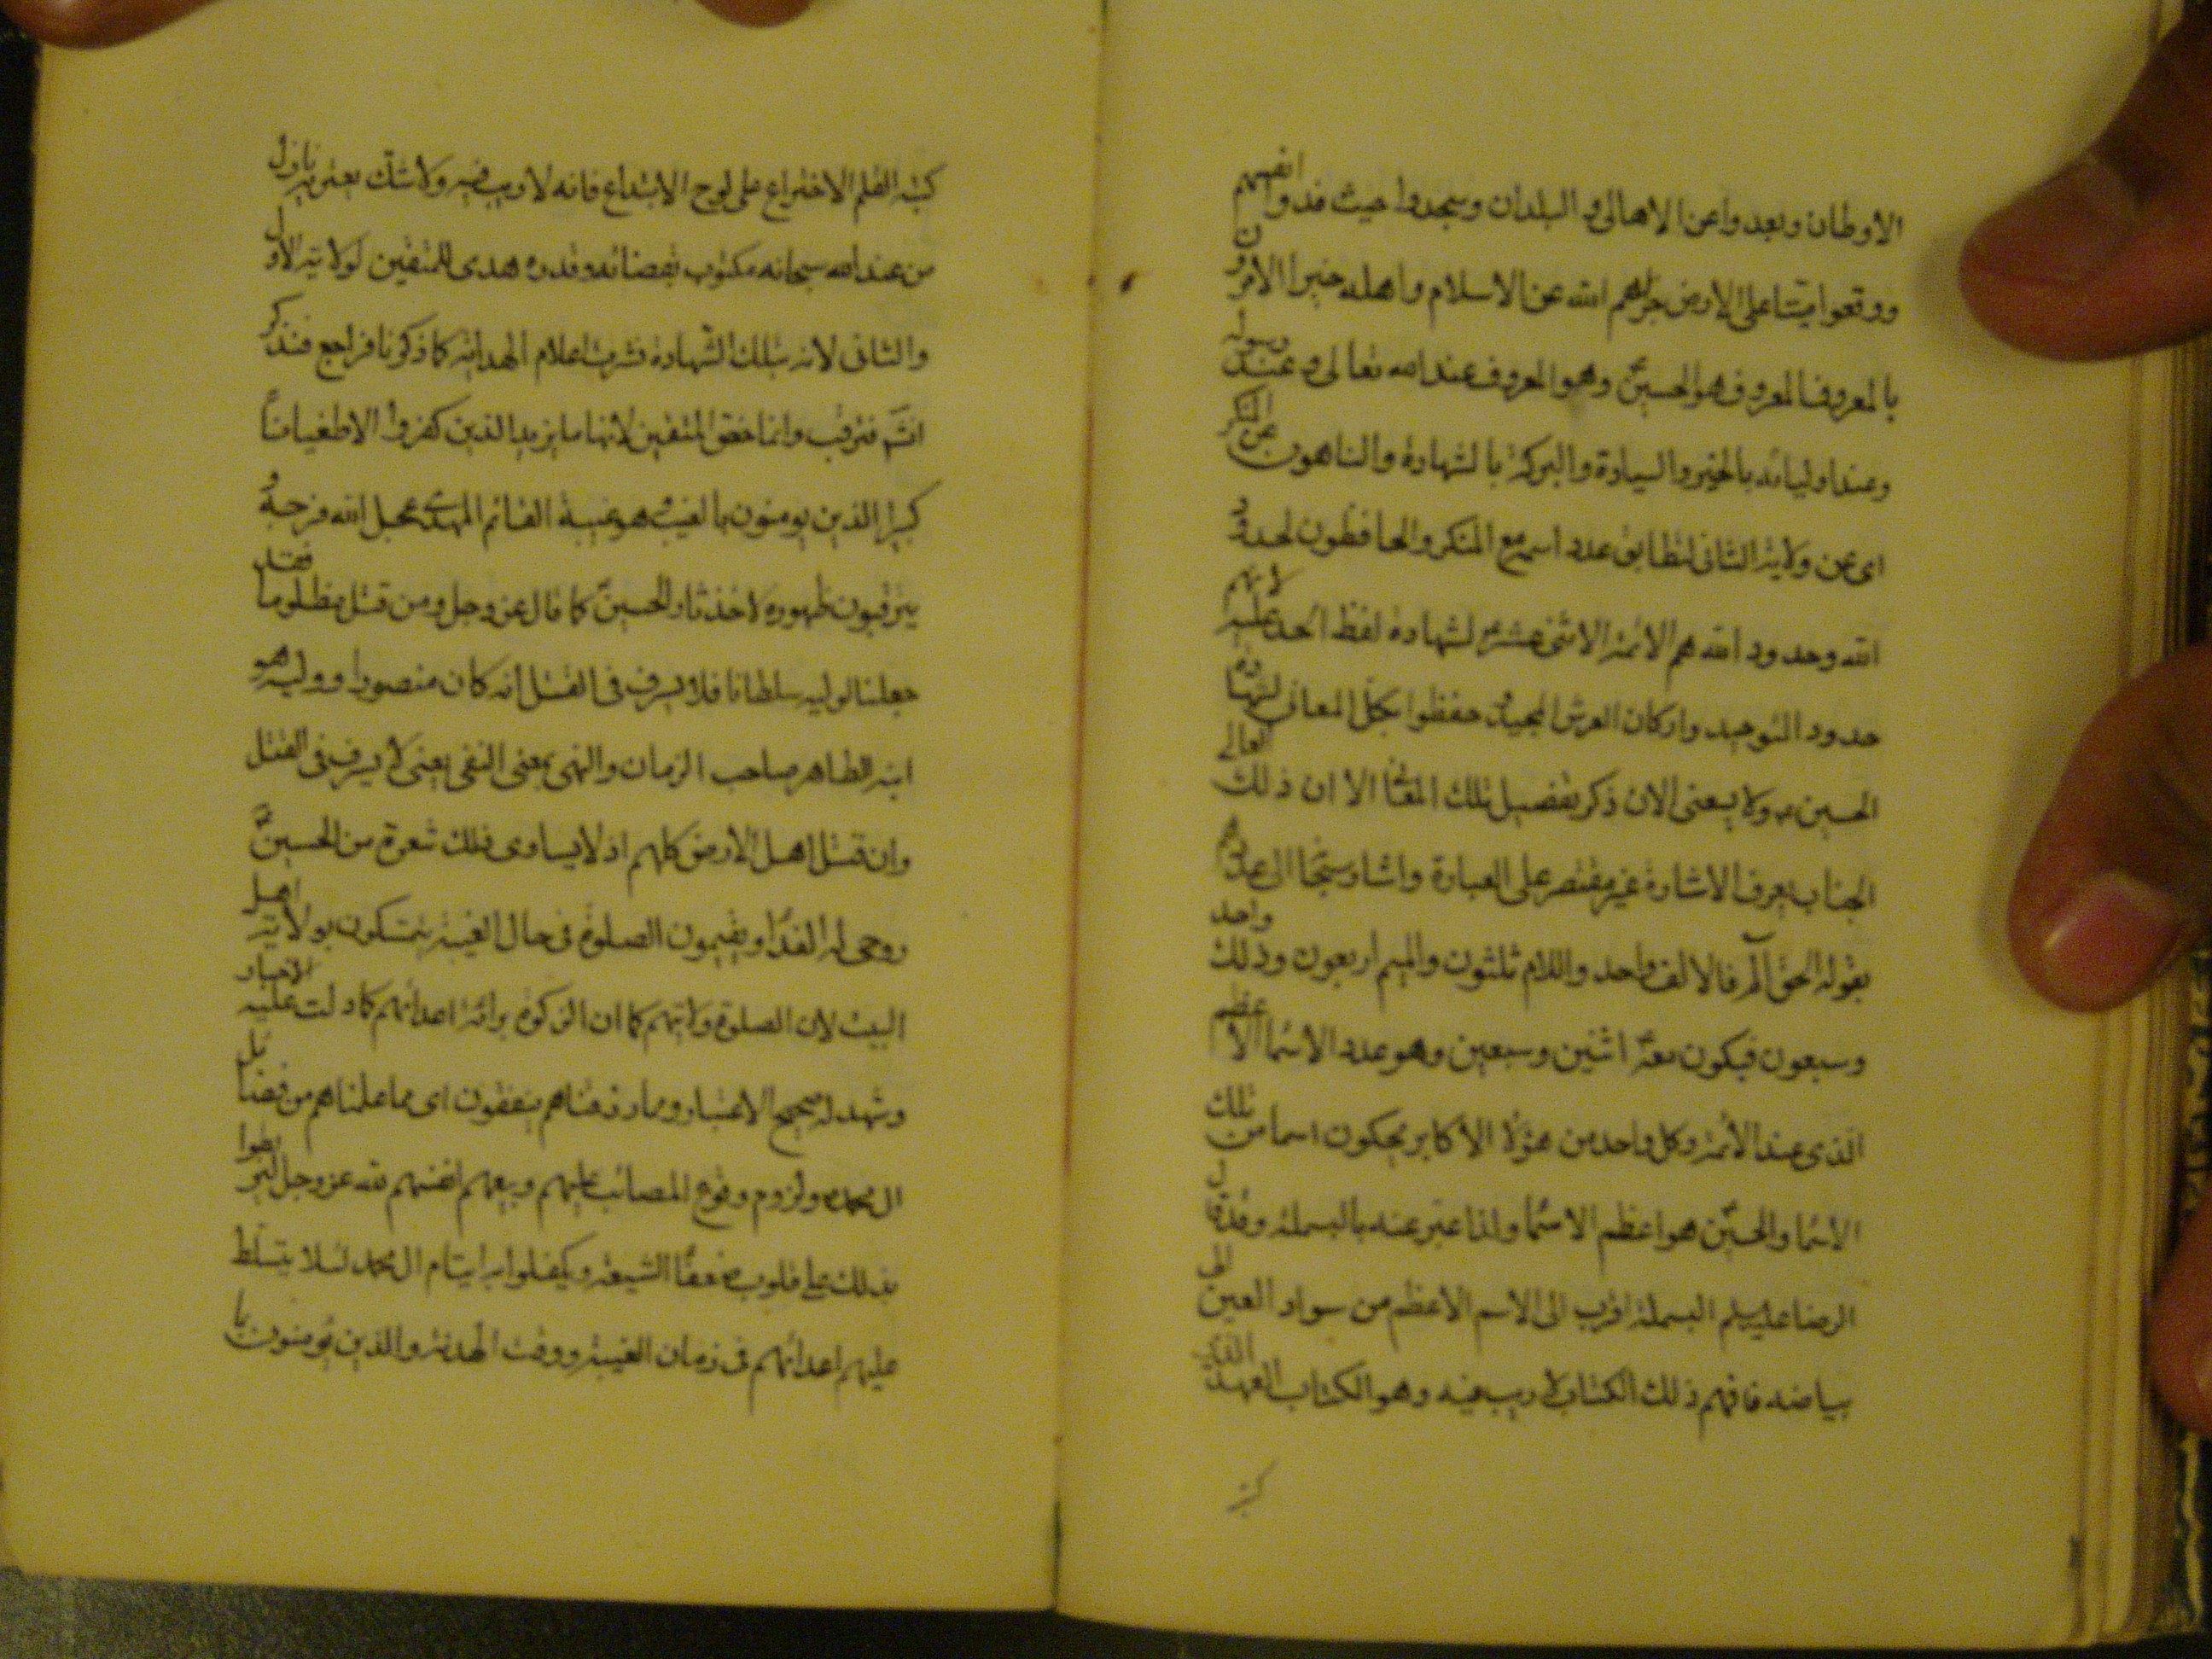 الاوطان وبعدوا عن الاهالى و البلدان وسجدوا حيث فدوا انفسهم
ووقعوا ميتا على الارض جزاهم الله عن الاسلام واهله خيرا الامرون
بالمعروف المعروف هو الحسين ع وهو المعروف عند الله تعالى و عند رسوله
وعند اوليائه بالخير والسيادة والبركة بالشهادة والناهون عن المنكر
اى عن ولاية الثانى لتطابق عدد اسمه مع المنكر والحافظون لحدود
الله وحدود الله هم الائمة الاثنى عشر لشهادة لفظ الحد عليه لانهم
حدود التوحيد واركان العرش المجيد حفظوا بكل المعانى لشهادة
الحسين ولا يسعنى الان ذكر تفصيل تلك المعانى الا ان ذلك العالى
الجناب يعرف الاشارة غير مقتصر على العبارة واشار سبحانه الى عددهم
بقوله الحق الم فالالف واحد واللام ثلثون والميم اربعون وذلك واحد
وسبعون فيكون معه اثنين وسبعين وهو عدد الاسماء الاعظم
الذى عند الائمة وكل واحد من هؤلاء الاكابر يحكون اسما من تلك
الاسماء والحسين ع هو اعظم الاسماء ولذا عبر عنه بالبسملة وقد قال
الرضا عليه السلم البسملة اقرب الى الاسم الاعظم من سواد العين الى
بياضه فافهم ذلك الكتاب لا ريب فيه وهو الكتاب العهد الذى
كتبه
كتبه القلم الاختراع على لوح الابتداع فانه لا ريب فيه ولا شك يعتريه نازل
من عند الله سبحانه مكتوب بقضائه وقدره هدى للمتقين لولايته الاول
والثانى لانه بتلك الشهادة نشرت اعلام الهداية كما ذكرنا فراجع فتذكر
انتم فترقب وانما خص المتقين لانها ما يزيد الذين كفروا الا طغيانا
كبيرا الذين يومنون بالغيب هو غيبة القائم المهدى عجل الله فرجه و
يترقبون ظهوره لاخذ ثار الحسين ع كما قال عز وجل ومن قتل مظلوما فقد
جعلنا لوليه سلطانا فلا يسرف فى القتل انه كان منصورا ووليه هو
ابنه الطاهر صاحب الزمان والنهى بمعنى النفى يعنى لا يسرف فى القتل
وان قتل اهل الارض كلهم اذ لا يساوى ذلك شعرة من الحسين ع
روحى له الفداء ويقيمون الصلوة فى حال الغيبة يتمسكون بولاية اهل
البيت لان الصلوة ولايتهم كما ان الزكوة برائة اعدائهم كما دلت عليه الاخبار
وشهد له صحيح الاعتبار ومما رزقناهم ينفقون اى مما علمناهم من فضايل
ال محمد ولزوم وقوع المصائب عليهم وبيعهم انفسهم لله عز وجل ليربطوا
بذلك على قلوب ضعفاء الشيعة ويكفلوا به ايتام ال محمد لئلا يتسلط
عليهم اعدائهم فى زمان الغيبة ووقت الهدنة والذين يومنون با